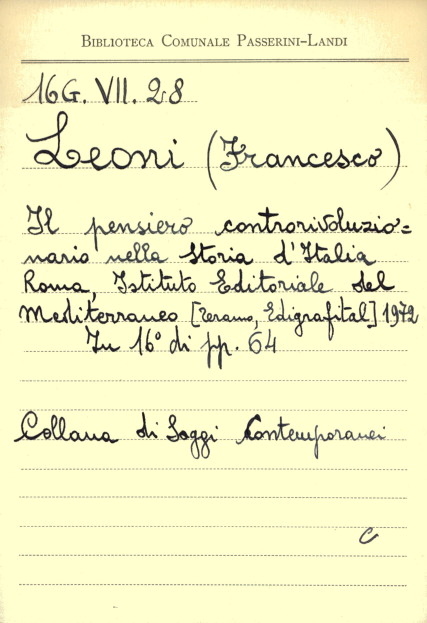 BIBLIOTECA COMUNALE PASSERINI-LANDI
16G. VII. 28
Leoni (Francesco)
Il pensiero controrivoluzio=
nario nella Storia d'Italia
Roma, Istituto Editoriale del
Mediterraneo [Teramo, Edigrafital] 1972
In 16° di pp. 64
Collana di Saggi Contemporanei
C